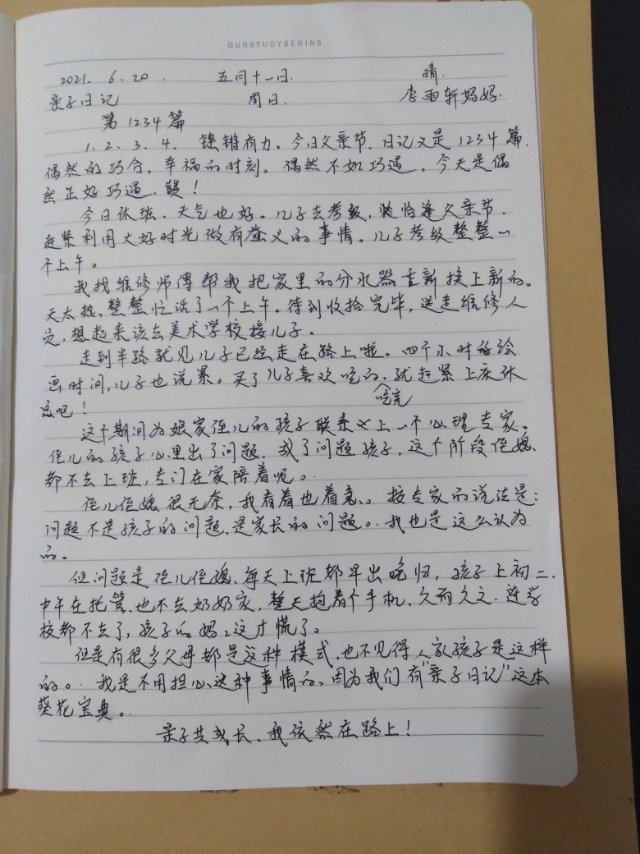 OURSTUDYBEGINS
2021. 6.20. 五月十一日. 晴.
亲子日记 周日. 李雨轩妈妈.
第1234篇
1.2.3.4. 铿锵有力。今日父亲节、日记又是1234篇.
偶然的巧合,幸福的时刻。偶然不如巧遇,今天是偶
然正好巧遇,赞!
今日休班、天气也好。儿子去考级,恰逢父亲节.
赶紧利用大好时光做有意义的事情。儿子考级整整一
个上午。
我找维修师傅帮我把家里的分水器重新换上新的。
天太热,整整忙活了一个上午。待到收拾完毕,送走维修人
员,想起来该去美术学校接儿子。
走到半路就见儿子已经走在路上啦。四个小时的绘
画时间,儿子也说累。买了儿子喜欢吃的,吃完就赶紧上床休
息吧!
这个期间为娘家侄儿的孩子联系上一个心理专家。
侄儿的孩子心里出了问题.成了问题孩子,这个阶段侄媳
都不去上班,专门在家陪着呢。
侄儿侄媳很无奈,我看着也着急。按专家的说法是:
问题不是孩子的问题、是家长的问题。我也是这么认为
的。
但问题是侄儿侄媳、每天上班都早出晚归,孩子上初二.
中午在托管、也不去奶奶家,整天抱着个手机、久而久之.连学
校都不去了,孩子的妈、这才慌了。
但是有很多父母都是这种模式,也不见得人家孩子是这样
的。我是不用担心这种事情的、因为我们有“亲子日记”这本
葵花宝典。
亲子共成长、我依然在路上!